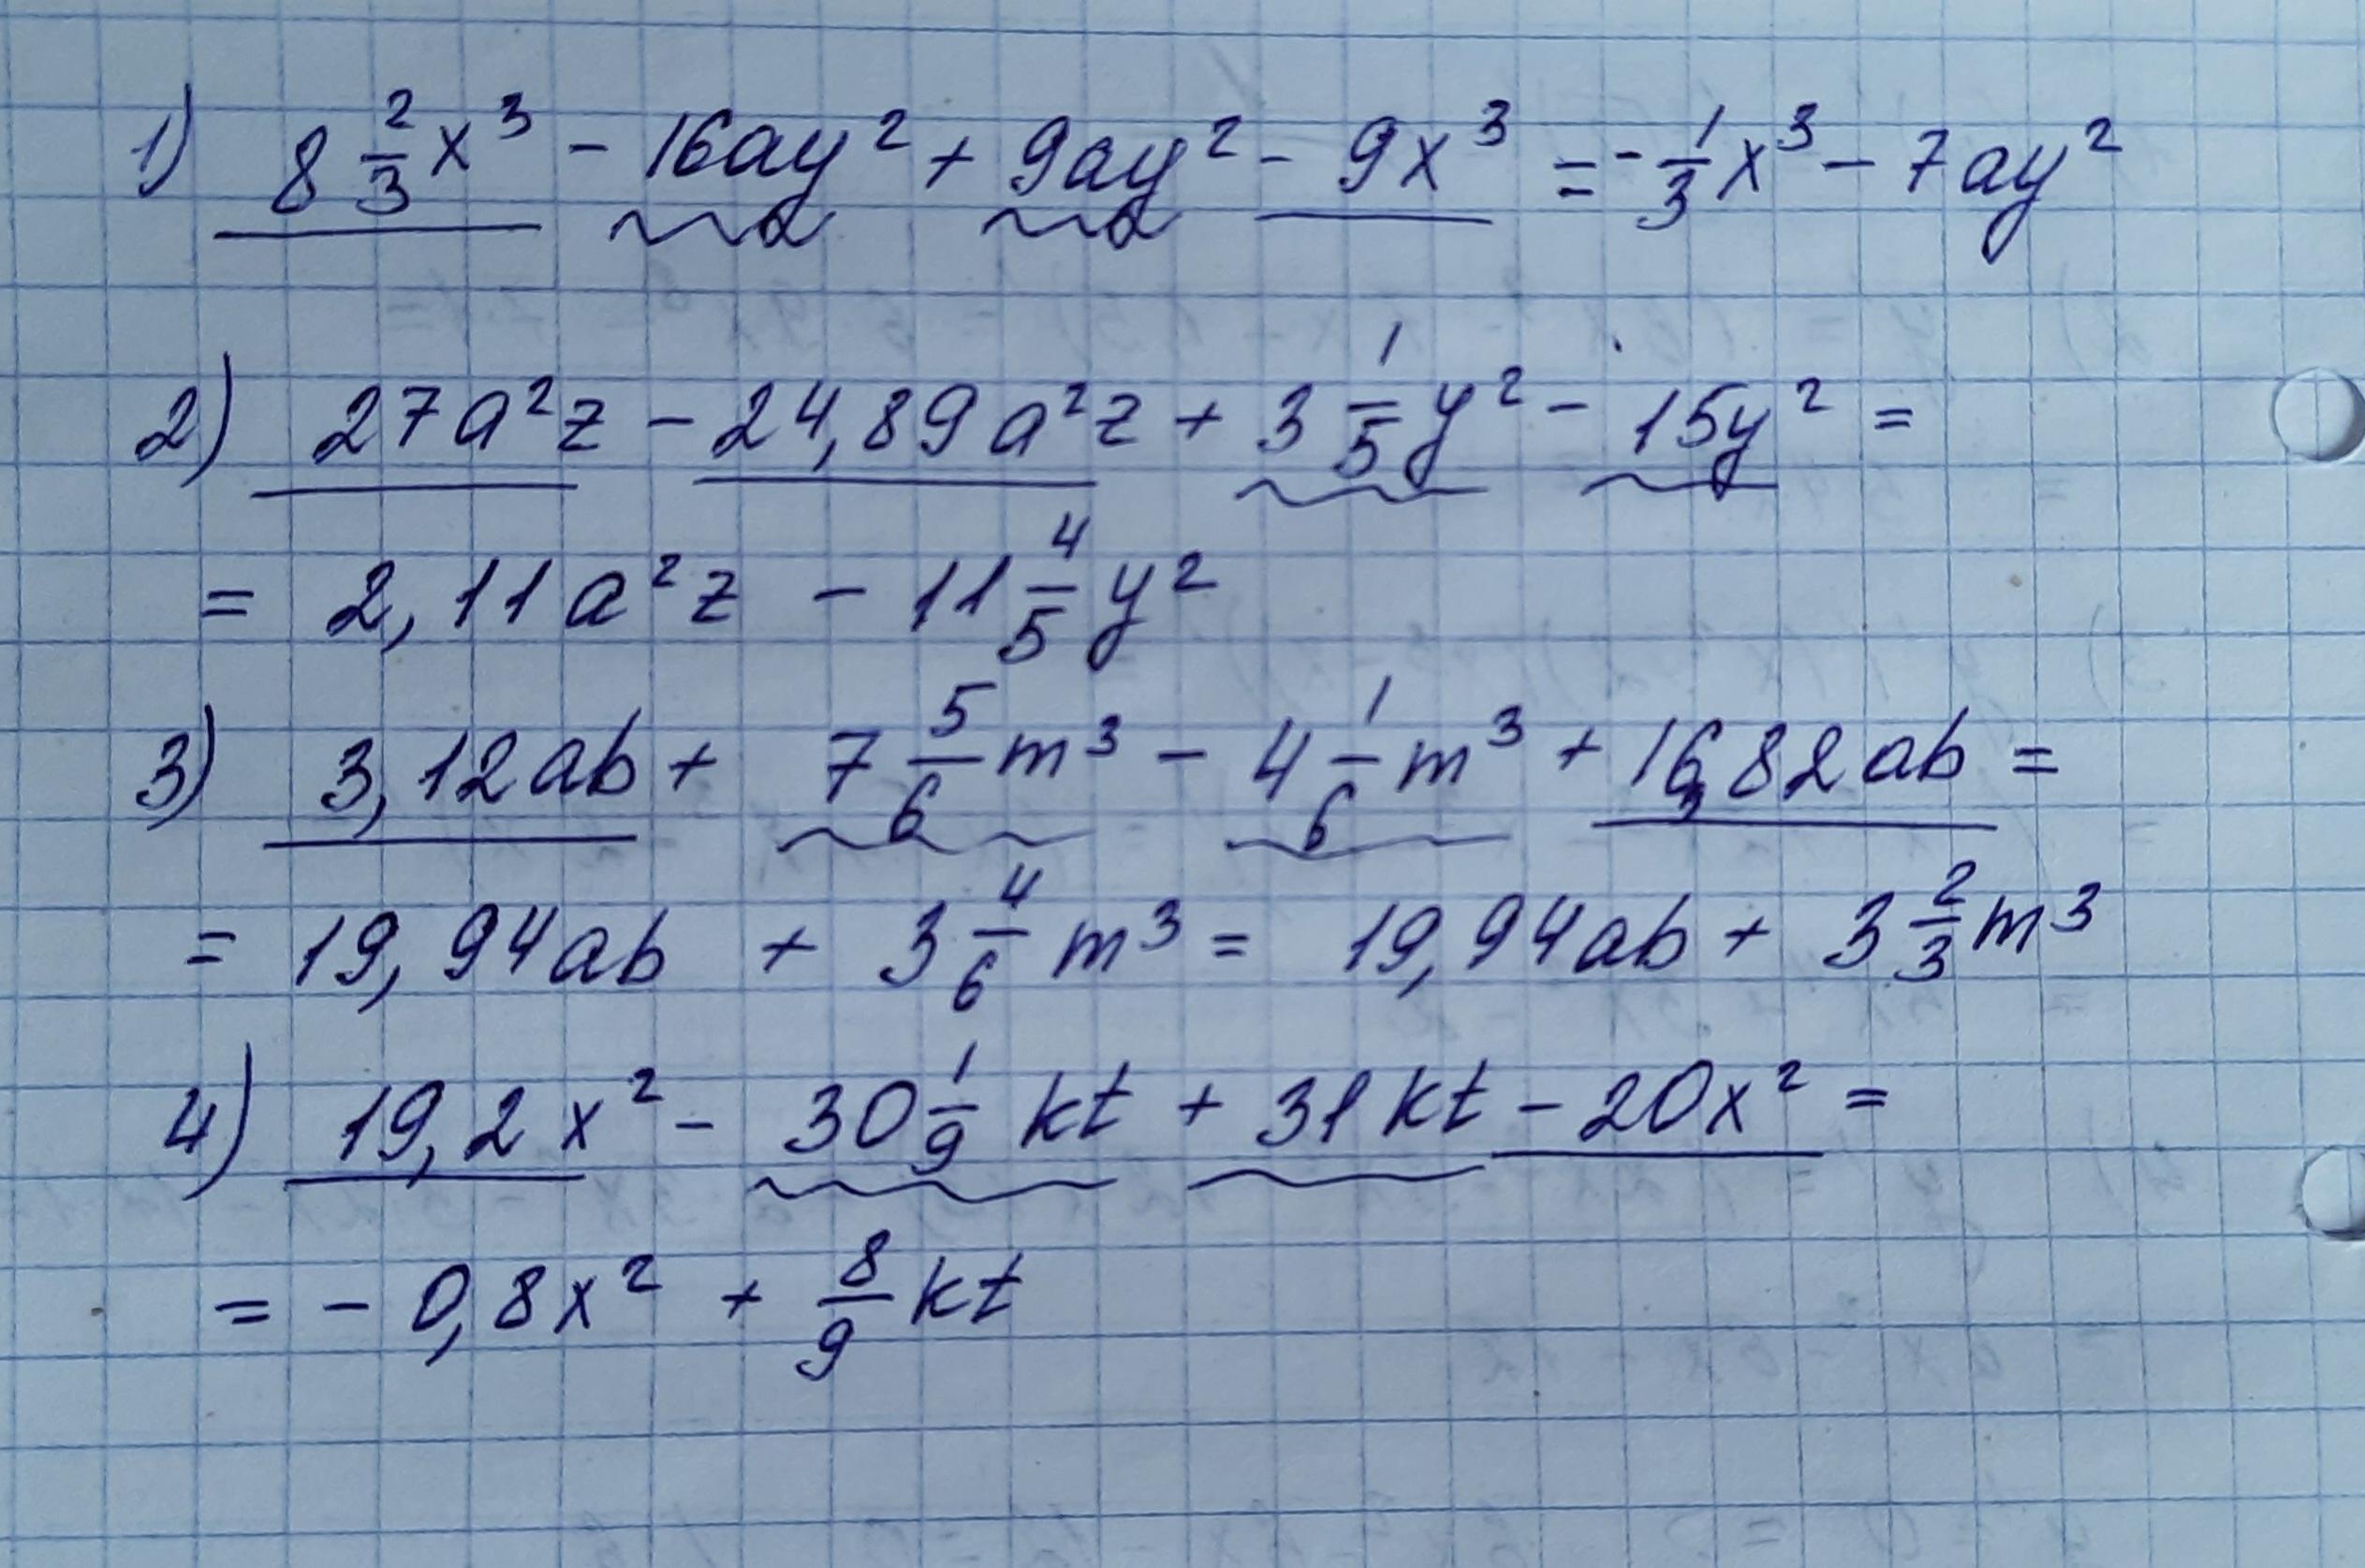 1) 8 2/3 x³ - 16ay² + 9ay² - 9x³ = - 1/3 x³ - 7ay²
2) 27a²z - 24,89a²z + 3 1/5 y² - 15y² =
= 2,11a²z - 11 4/5 y²
3) 3,12ab + 7 5/6 m³ - 4 1/6 m³ + 16,82ab =
= 19,94ab + 3 4/6 m³ = 19,94ab + 3 2/3 m³
4) 19,2x² - 30 1/9 kt + 31kt - 20x² =
= - 0,8x² + 8/9 kt